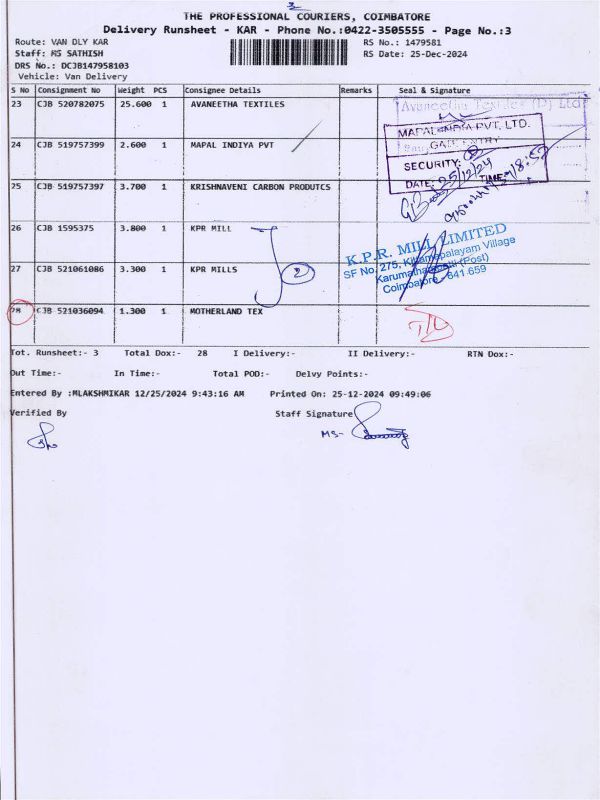 3
THE PROFESSIONAL COURIERS, COIMBATORE
Delivery Runsheet - KAR - Phone No.:0422-3505555 - Page No.:3
Route: VAN DLY KAR
RS No.: 1479581
Staff: MS SATHISH
RS Date: 25-Dec-2024
DRS No.: DCJB147958103
Vehicle: Van Delivery
S No Consignment No Weight PCS Consignee Details Remarks Seal & Signature
23 CJB 520782075 25.600 1 AVANEETHA TEXTILES
Avaneetha Textiles (P) Ltd
24 CJB 519757399 2.600 1 MAPAL INDIYA PVT
MAPAL INDIA PVT. LTD.
GATE ENTRY
SECURITY:
DATE: 25/12/24 TIME:
25 CJB 519757397 3.700 1 KRISHNAVENI CARBON PRODUTCS
26 CJB 1595375 3.800 1 KPR MILL
K.P.R. MILL LIMITED
SF No. 275, Kittampalayam Village
Karumathampatti (Post)
Coimbatore - 641 659
27 CJB 521061086 3.300 1 KPR MILLS
2
28 CJB 521036094 1.300 1 MOTHERLAND TEX
Tot. Runsheet:- 3 Total Dox:- 28 I Delivery:- II Delivery:- RTN Dox:-
Out Time:- In Time:- Total POD:- Delvy Points:-
Entered By :MLAKSHMIKAR 12/25/2024 9:43:16 AM Printed On: 25-12-2024 09:49:06
Verified By Staff Signature
MS-